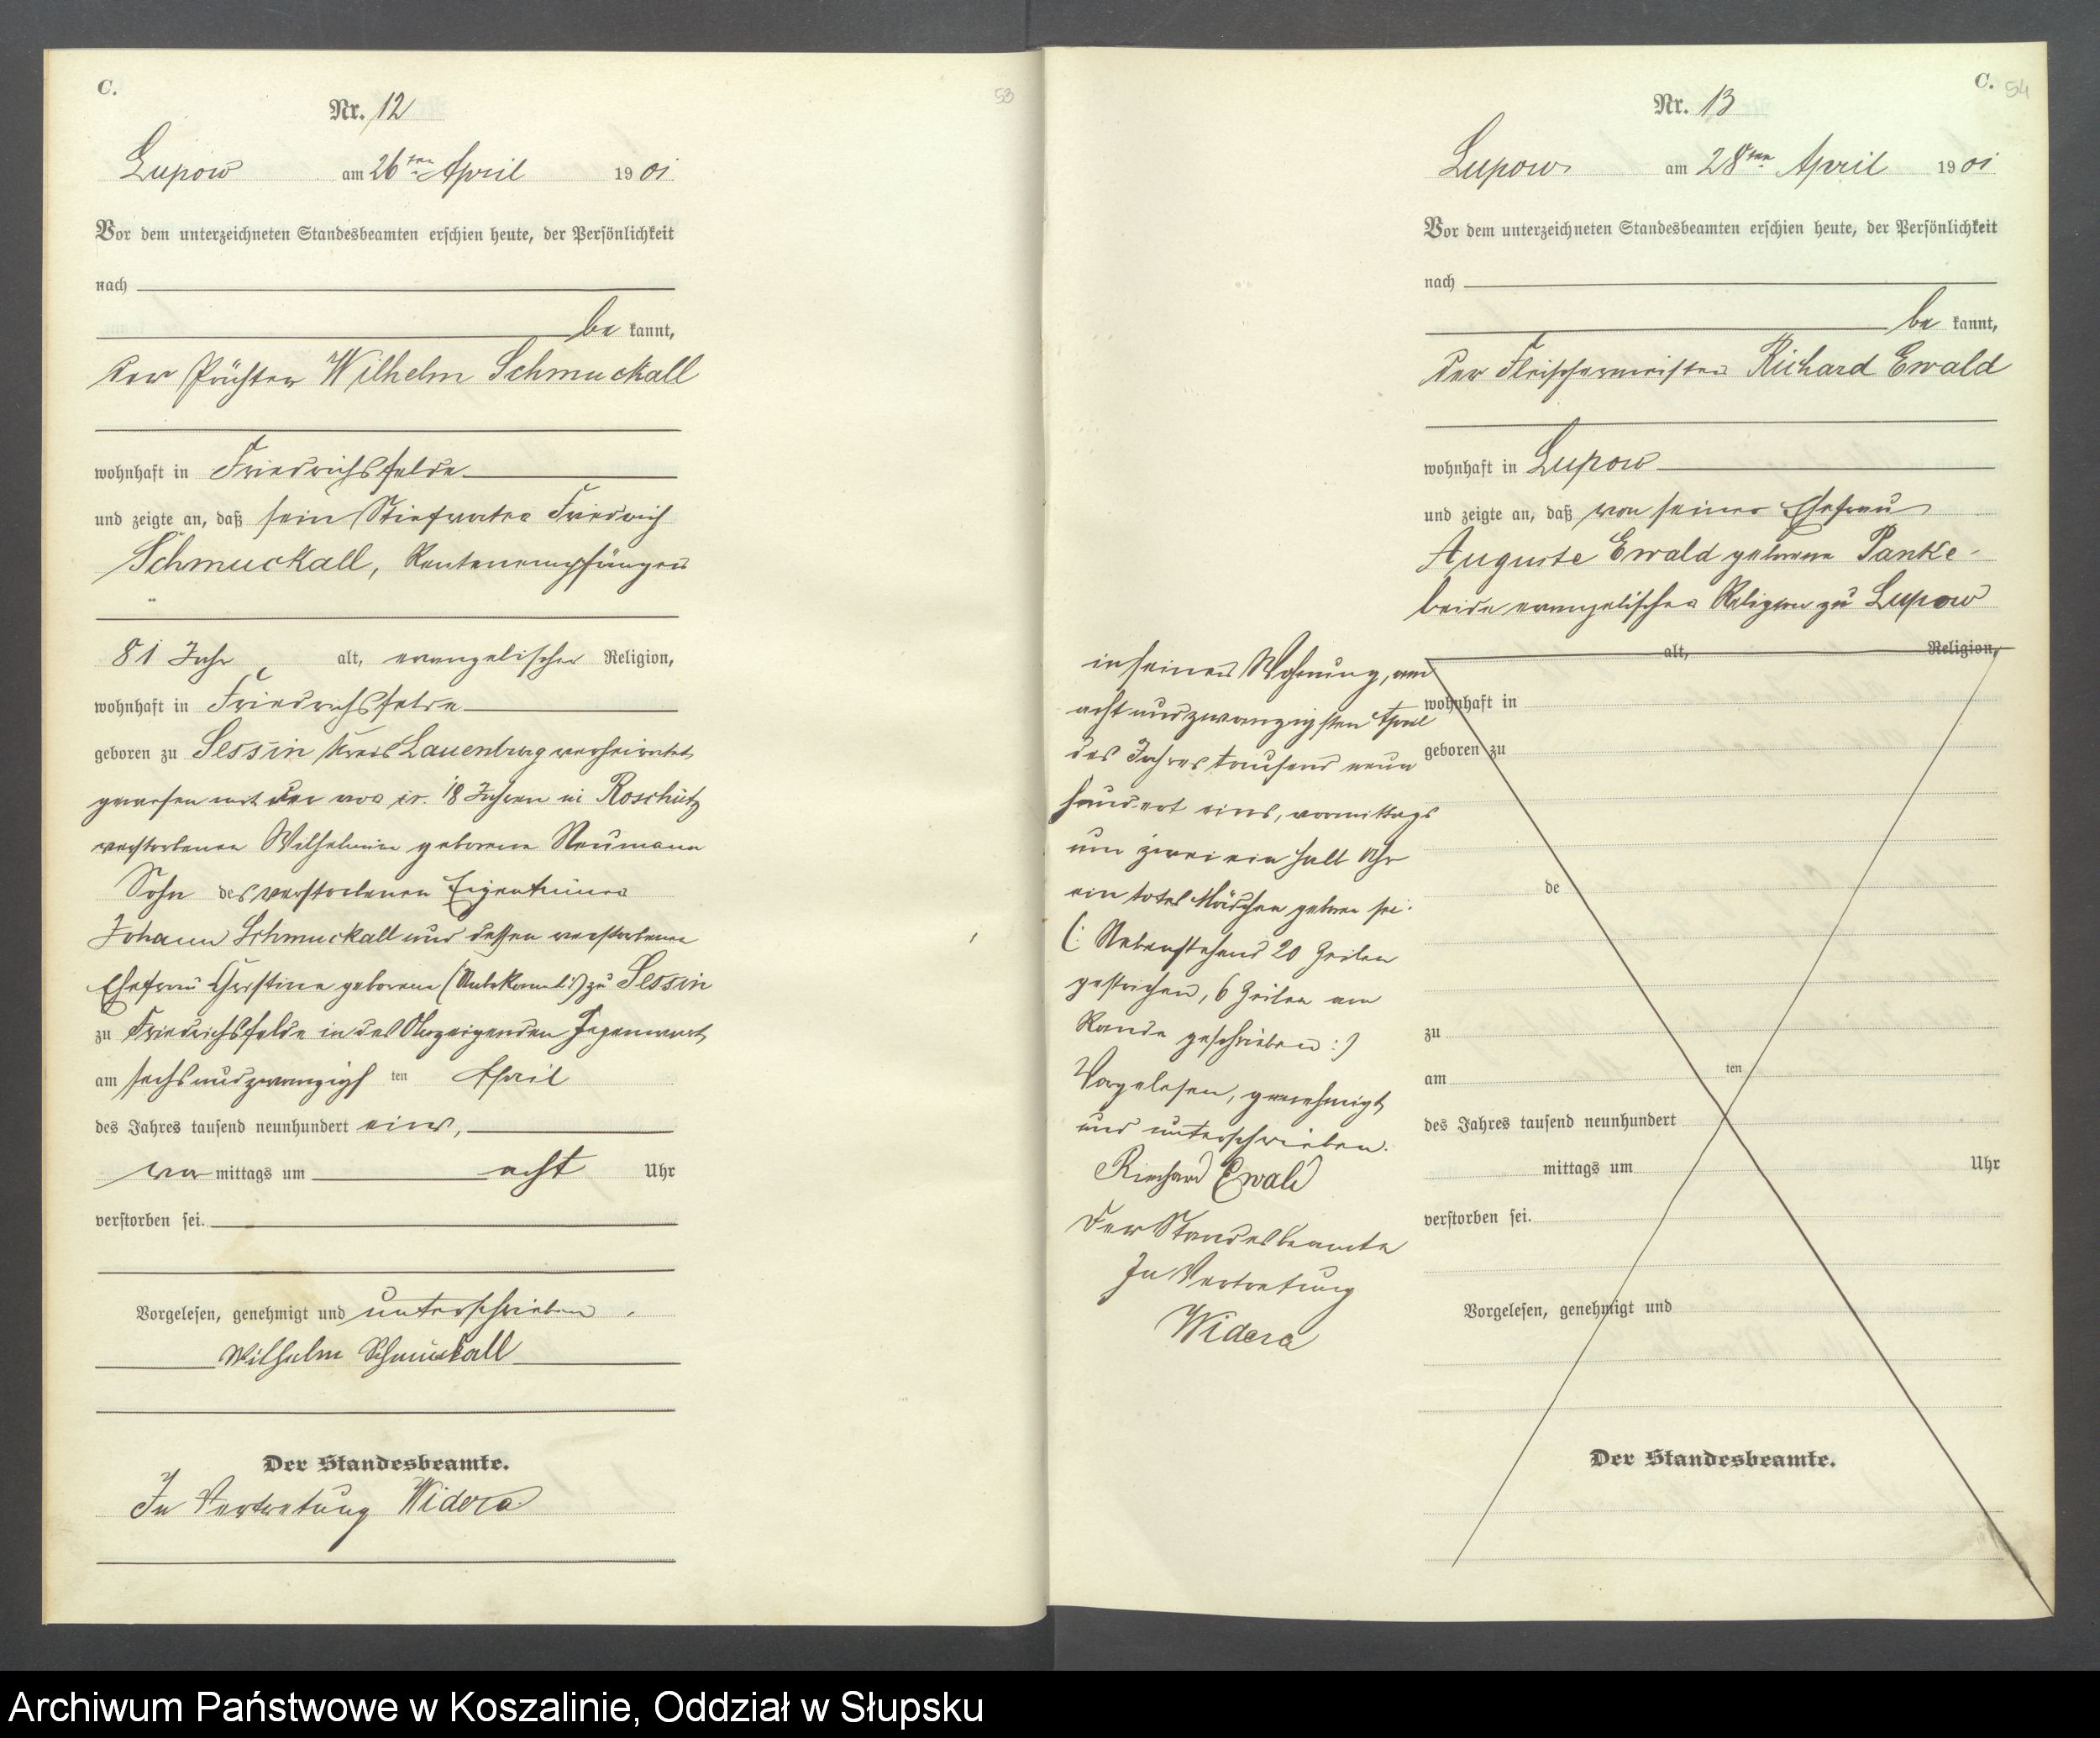 C.
53
Nr. 12
Lupow am 26ten April 1901
Vor dem unterzeichneten Standesbeamten erschien heute, der Persönlichkeit
nach
be kannt,
der Pächter Wilhelm Schmuckall
wohnhaft in Friedrichsfelde
und zeigte an, daß sein Stiefvater Friedrich
Schmuckall, Rentenempfänger
81 Jahr alt, evangelischer Religion,
wohnhaft in Friedrichsfelde
geboren zu Sessin Kreis Lauenburg verheirathet
gewesen mit der vor ir. 18 Jahren in Roschütz
verstorbenen Wilhelmine geborene Neumann
Sohn des verstorbenen Eigentümers
Johann Schmuckall und dessen verstorbene
Ehefrau Christine geborene (Unbekannt:) zu Sessin
zu Friedrichsfelde in des Anzeigenden Gegenwart
am sechsundzwanzigsten April
des Jahres tausend neunhundert eins,
vor mittags um acht Uhr
verstorben sei.
Vorgelesen, genehmigt und unterschrieben.
Wilhelm Schmuckall
Der Standesbeamte.
In Vertretung Widera
C. 54
Nr. 13
Lupow am 28ten April 1901
Vor dem unterzeichneten Standesbeamten erschien heute, der Persönlichkeit
nach
be kannt,
der Fleischermeister Richard Ewald
wohnhaft in Lupow
und zeigte an, daß von seiner Ehefrau
Auguste Ewald geborene Panke
beide evangelischer Religion zu Lupow
in seiner Wohnung, am
acht und zwanzigsten April
des Jahres tausend neun
hundert eins, vormittags
um zwei ein halb Uhr
ein totes Mädchen geboren sei.
(: Nebenstehend 20 Zeilen
gestrichen, 6 Zeilen am
Rande geschrieben :)
Vorgelesen, genehmigt
und unterschrieben.
Richard Ewald
Der Standesbeamte
In Vertretung
Widera
alt, Religion,
wohnhaft in
geboren zu
de
zu
am ten
des Jahres tausend neunhundert
mittags um Uhr
verstorben sei.
Vorgelesen, genehmigt und
Der Standesbeamte.
Archiwum Państwowe w Koszalinie, Oddział w Słupsku